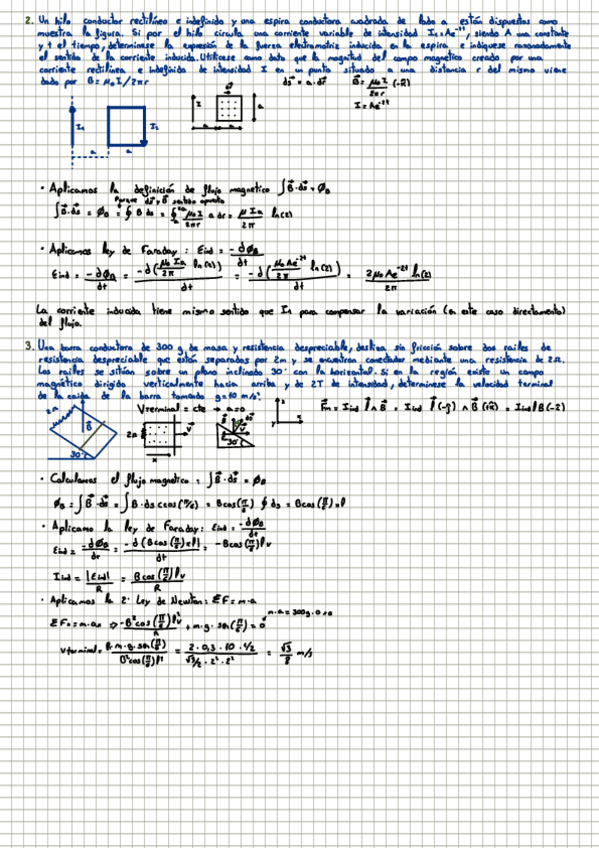 2. Un hilo conductor rectilíneo e indefinido y una espira conductora cuadrada de lado a están dispuestos como
muestra la figura. Si por el hilo circula una corriente variable de intensidad I₁=Ae⁻²ᵗ, siendo A una constante
y t el tiempo, determínese la expresión de la fuerza electromotriz inducida en la espira e indíquese razonadamente
el sentido de la corriente inducida. Utilícese como dato que la magnitud del campo magnético creado por una
corriente rectilínea e indefinida de intensidad I en un punto situado a una distancia r del mismo viene
dado por B=μ₀I/2πr
ds = a·dr B = μ₀I/2πr
I = Ae⁻²ᵗ
I₁ I₂
a a
I a
a a
• Aplicamos la definición de flujo magnetico ∫B·ds = ϕB
Porque ds y B sentido opuesto
∫B·ds = ϕB = ∮ B ds = μ₀I/2πr a dr = μ I a/2π ln(2)
• Aplicamos ley de Faraday: Eind = -dϕB/dt
Eind = -dϕB/dt = -d(μ₀Ia/2π ln(2))/dt = -d(μ₀Ae⁻²ᵗ/2π ln(2))/dt = 2μ₀Ae⁻²ᵗ ln(2)/2π
La corriente inducida tiene mismo sentido que I₁ para compensar la variación (en este caso directamente)
del flujo.
3. Una barra conductora de 300 g de masa y resistencia despreciable, desliza sin fricción sobre dos railes de
resistencia despreciable que están separados por 2m y se encuentran conectados mediante una resistencia de 2Ω.
Los railes se sitúan sobre un plano inclinado 30° con la horizontal. Si en la región existe un campo
magnético dirigido verticalmente hacia arriba y de 2T de intensidad, determínese la velocidad terminal
de la caída de la barra tomando g=10 m/s².
Vterminal = cte → a=0
Fm = Iind l∧B = Iind l(-ĵ) ∧ B
2m B 30°
2m x v
30°
• Calculamos el flujo magnetico: ∫B·ds = ϕB
ϕB = ∫B·ds = ∫B·ds cos(π/6) = Bcos(π/6) ∮ds = Bcos(π/6)xl
• Aplicamos la ley de Faraday: Eind = -dϕB/dt
Eind = -dϕB/dt = -d(Bcos(π/6)xl)/dt = -Bcos(π/6)lv
Iind = |Eind|/R = Bcos(π/6)lv/R
• Aplicamos la 2ª Ley de Newton: ΣF=m·a
ΣFx=m·ax ⇒ -B²cos(π/6)l²v/R + m·g·sen(π/6) = 0
Vterminal = R·m·g·sen(π/6)/B²cos(π/6)l² = 2·0,3·10·1/2 / √3/2·2²·2² = √3/8 m/s